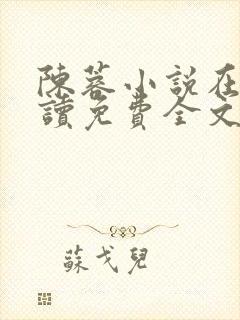 陳蓉小說在
讀免費全文
蘇戈兒